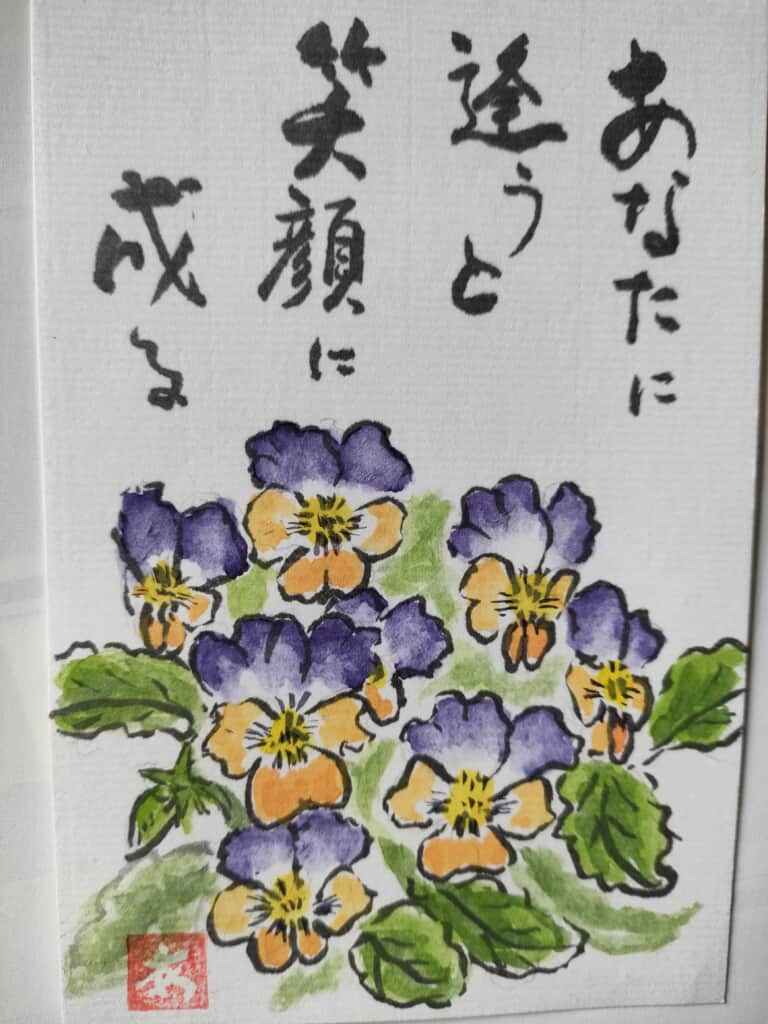 あなたに
逢うと
笑顔に
成る
あ